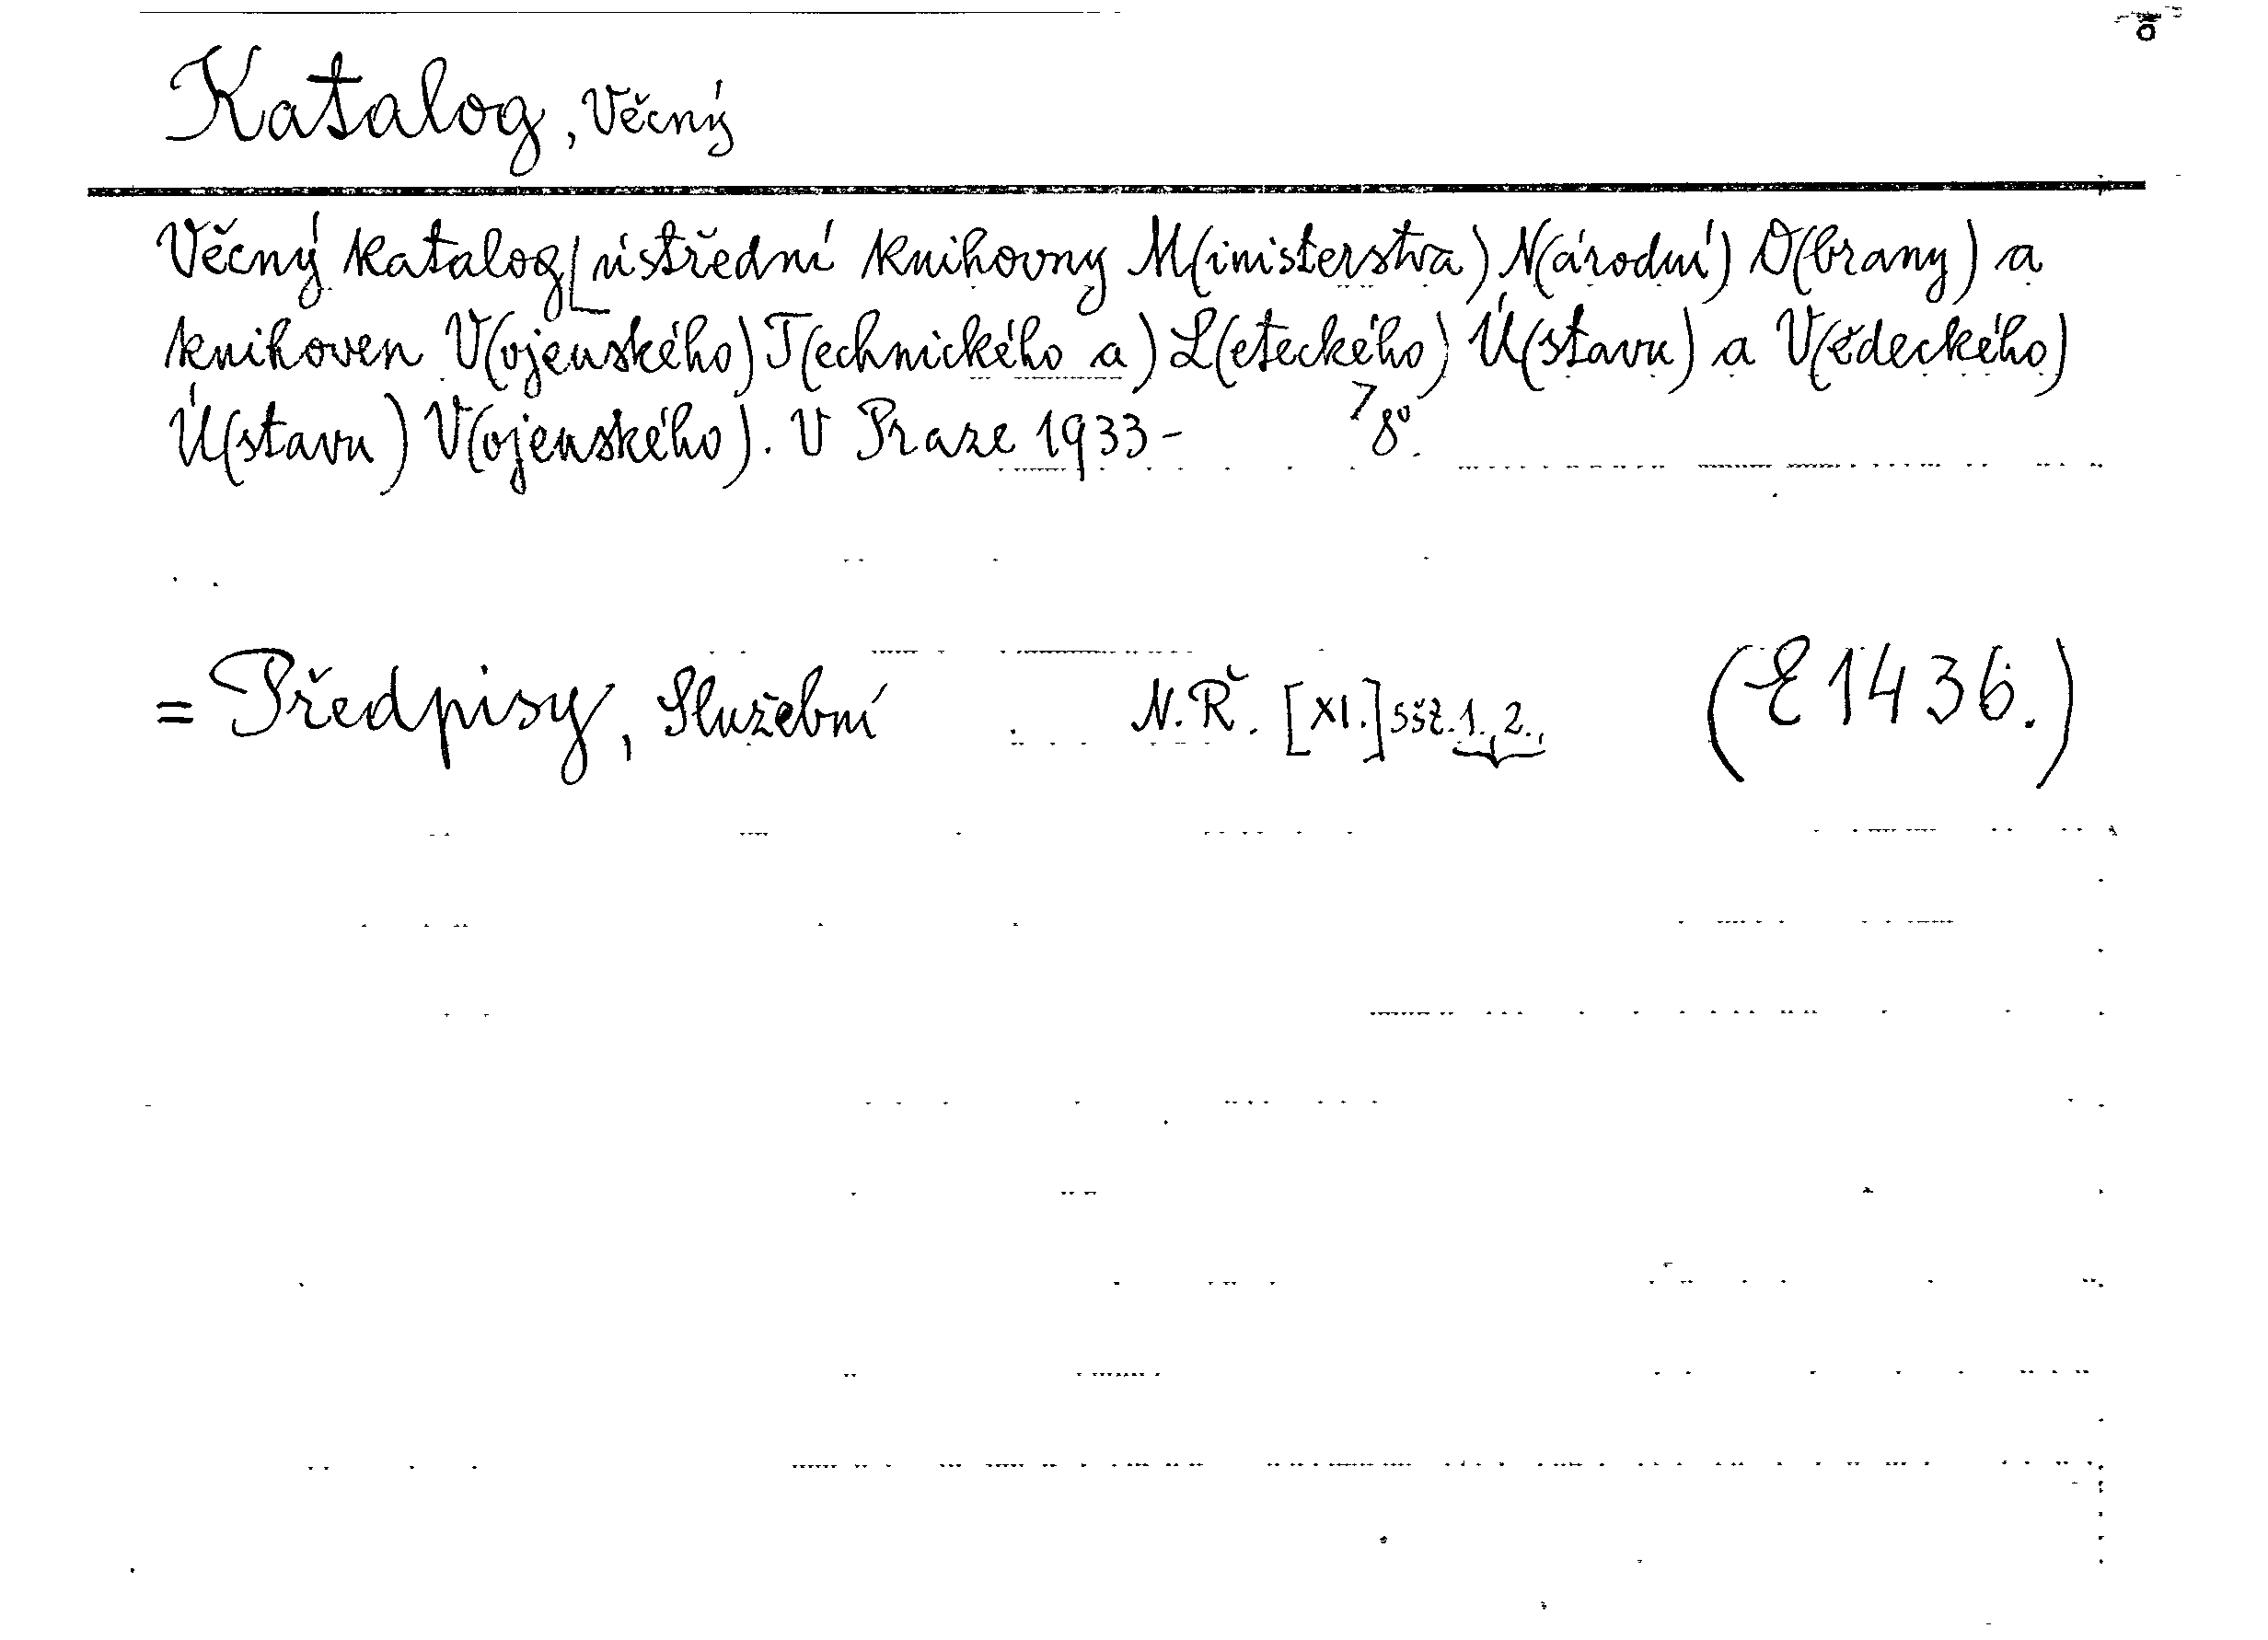 Katalog, Věcný
Věcný katalog ústřední knihovny M(inisterstva) N(árodní) O(brany) a
knihoven V(ojenského) T(echnického a) L(eteckého) Ú(stavu) a V(ědeckého)
Ú(stavu) V(ojenského). V Praze 1933- 8°.
= Předpisy, Služební N. Ř. [XI.] sšt. 1., 2., (E 1436.)